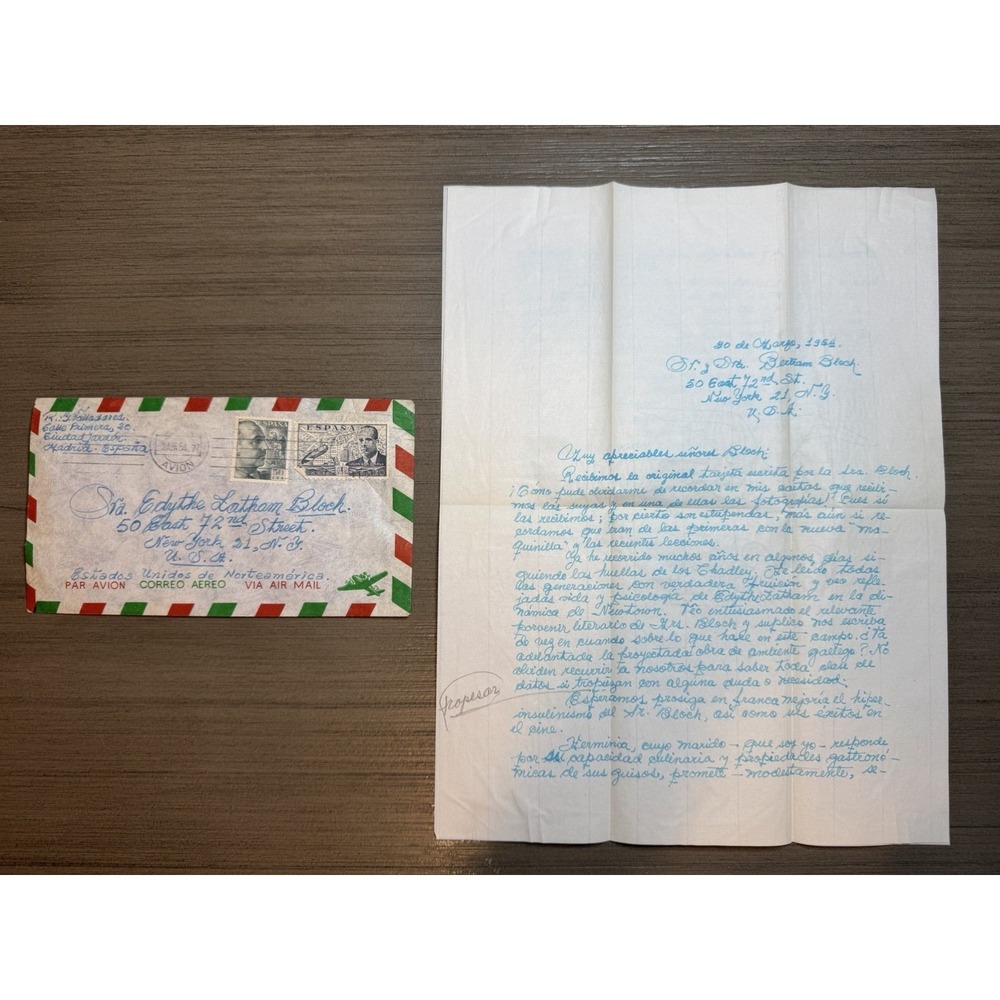 Calle Primera, 20.
Ciudad Jardín.
Madrid - España
AVION
ESPAÑA
ESPAÑA
Sra. Edythe Latham Bloch.
50 East 72nd Street.
New York 21, N.Y.
U. S. A.
Estados Unidos de Norteamérica.
PAR AVION CORREO AEREO VIA AIR MAIL
20 de Marzo, 1954.
Sr. y Sra. Bertram Bloch.
50 East 72nd St.
New York 21, N.Y.
U. S. A.
Muy apreciables señores Bloch:
Recibimos la original tarjeta escrita por la Sra. Bloch.
¡Cómo pude olvidarme de recordar en mis cartas que recibi-
mos las suyas y en una de ellas las fotografías! Pues sí
las recibimos; por cierto son estupendas, más aún si re-
cordamos que eran de las primeras con la nueva "ma-
quinilla" y las recientes lecciones.
Ya he recorrido muchos años en algunos días si-
guiendo las huellas de los Chadley. He leído todas
las generaciones con verdadera fruición y veo refle-
jadas vida y psicología de Edythe Latham en la di-
námica de Newtown. Veo entusiasmado el relevante
porvenir literario de Mrs. Bloch y suplico nos escriba
de vez en cuando sobre lo que hace en este campo. ¿Va
adelantada la proyectada obra de ambiente gallego? No
olviden recurrir a nosotros para saber toda clase de
datos si tropiezan con alguna duda o necesidad.
tropesar
Esperamos prosiga en franca mejoría el hiper-
insulinismo del Sr. Bloch, así como sus éxitos en
el cine.
Herminia, cuyo marido - que soy yo - responde
por su capacidad culinaria y propiedades gastronó-
micas de sus guisos, promete - modestamente, se-